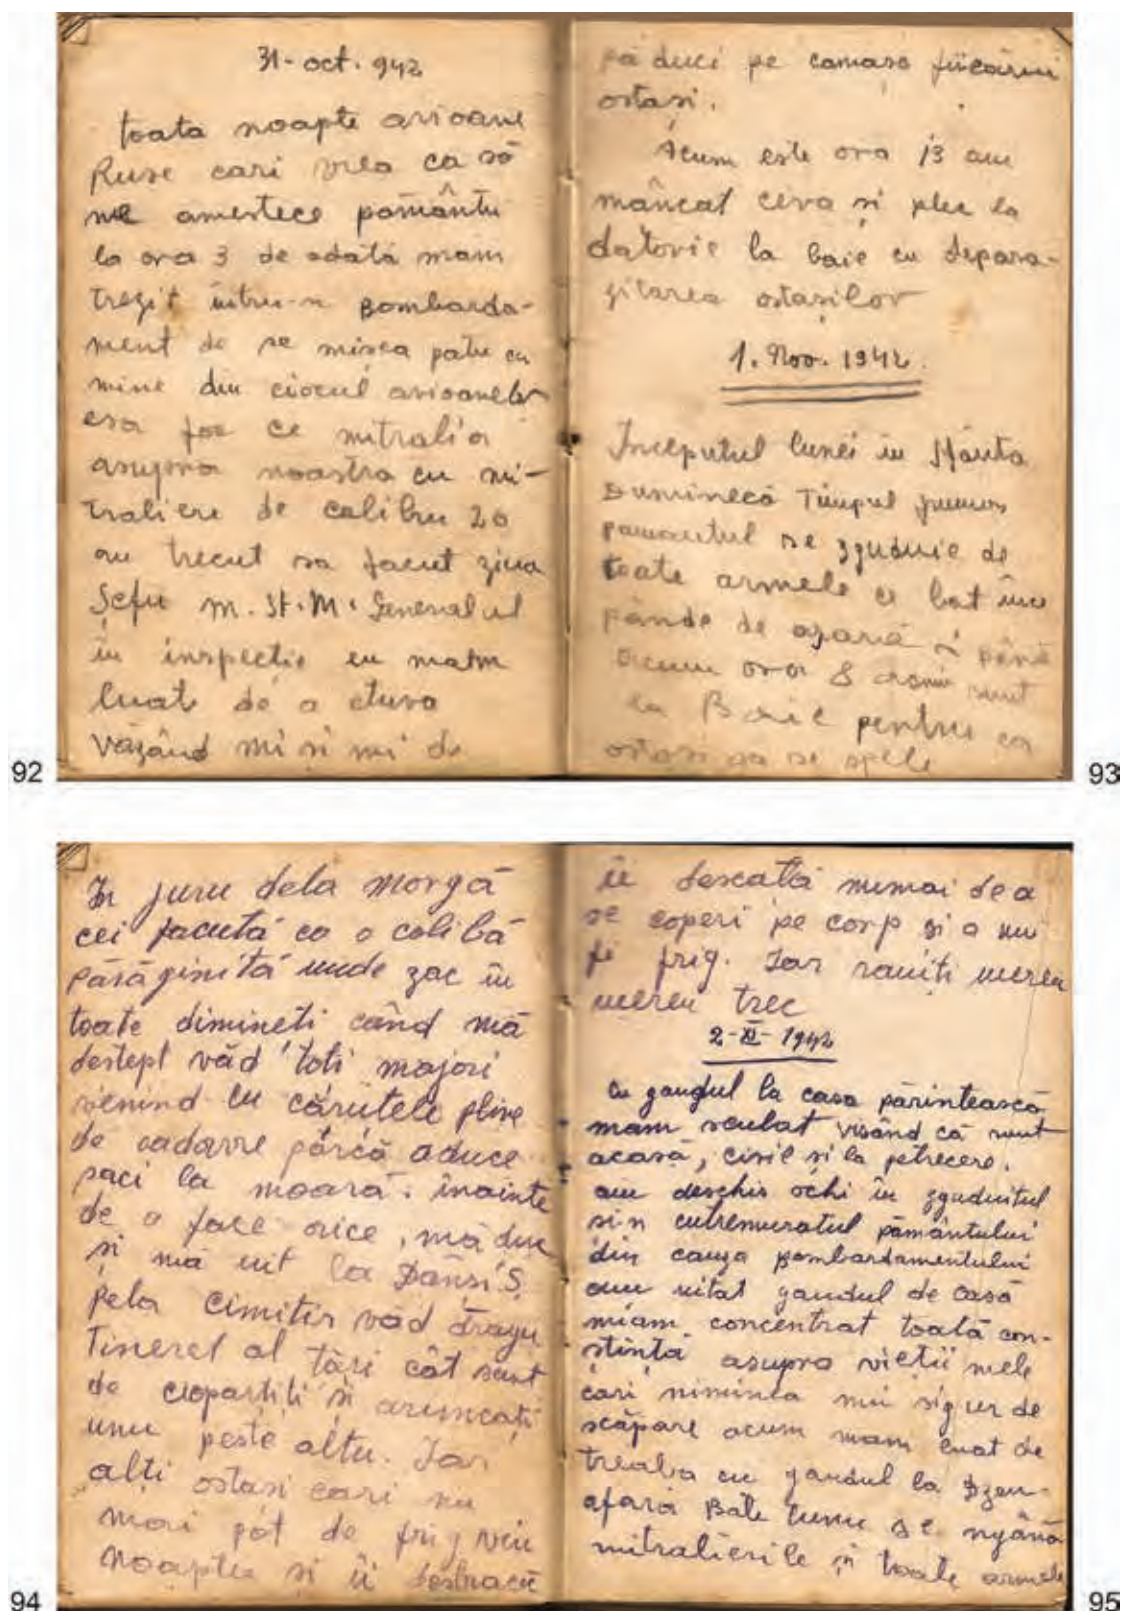 31-oct. 942
toata noapte avioane
Ruse cari vrea ca să
ne amestece pământu
la ora 3 de odată mam
trezit intru-n Bombarda-
ment de se mișca patu cu
mine din ciocul avioanelor
esa foc ce mitralia
asupra noastra cu mi-
traliere de calibru 20
au trecut sa facut ziua
Șefu M. St. M. Generalul
in inspectie eu mam
luat de a etuva
văzând mi si mi de
păduci pe camasa fiecărui
ostasi.
Acum este ora 13 am
mâncat ceva si plec la
datorie la baie cu depara-
zitarea ostașilor
1. Nov. 1942.
Inceputul lunei in Sfânta
Duminecă Timpul frumos
pamantul se zguduie de
toate armele ce bat ince
pănde de aseară si până
acum ora 8 sunt
la Baie pentru ca
ostasi sa se spele
92
93
In juru dela morgă
cei facută ca o colibă
părăginită unde zac in
toate dimineti când mă
destept văd toti majori
venind cu căruțele pline
de cadavre părcă aduce
saci la moară. inainte
de a face orice, mă duc
și mă uit la Dânsi S
pela cimitir văd dragu
Tineret al țări cât sunt
de ciopartiti si aruncați
unu peste altu. Iar
alți ostasi cari nu
mai pot de frig vin
noaptea si ii desbracă
ii descalță numai de a
se coperi pe corp si a nu
fi frig. Iar raniți mereu
mereu trec
2-XI-1942
Cu gandul la casa părintească
mam sculat visând că sunt
acasă, civil si la petrecere.
am deschis ochi in zguduitul
si-n cutremuratul pământului
din cauza Bombardamentului
am uitat gandul de casă
miam concentrat toată con-
stiința asupra vietii mele
cari niminea nui sigur de
scăpare acum mam luat de
treaba cu gandul la Dzeu-
afara Bate tunu se ngână
mitralierile si toate armele
94
95